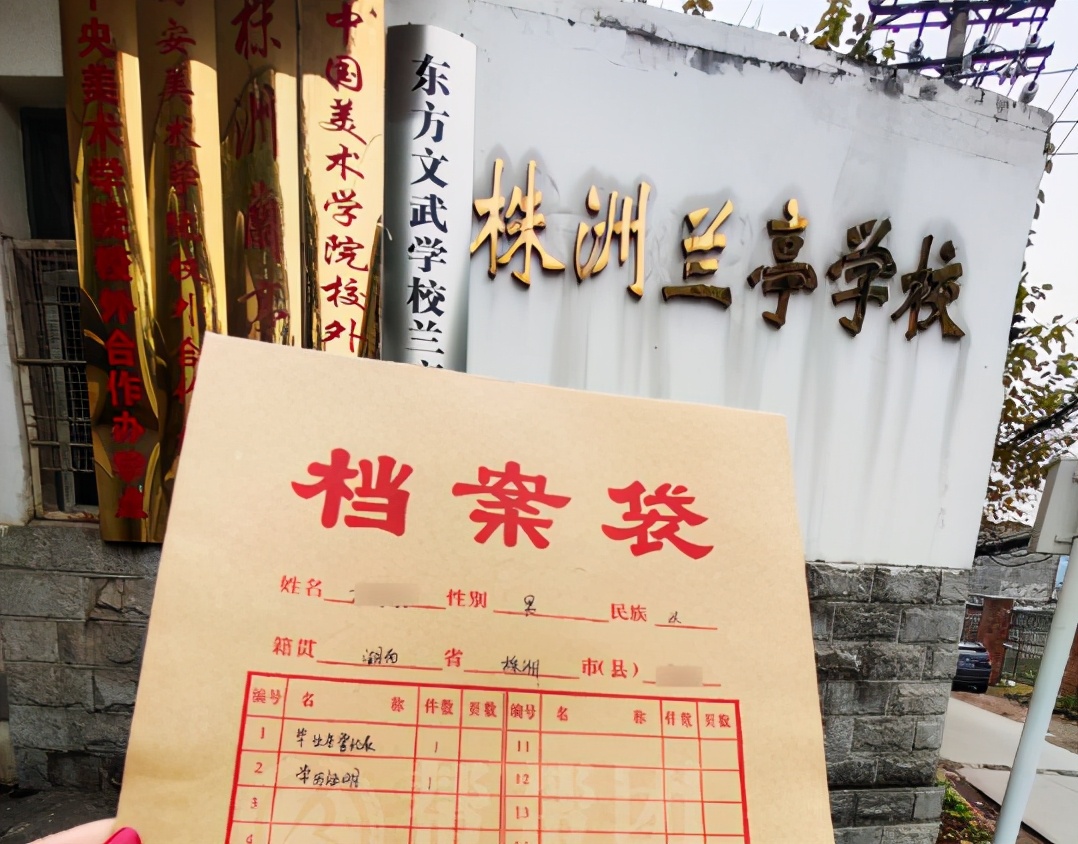 中央美术学院校外合作办学点
西安美术学院校外合作
株洲蘭亭
中国美术学院校外
东方文武学校兰亭
株洲兰亭学校
档案袋
姓名 性别 男 民族 汉
籍贯 湖南 省 株洲 市(县)
编号 名称 件数 页数 编号 名称 件数 页数
1 毕业生登记表 1 11
2 学历证明 1 12
3 13
4